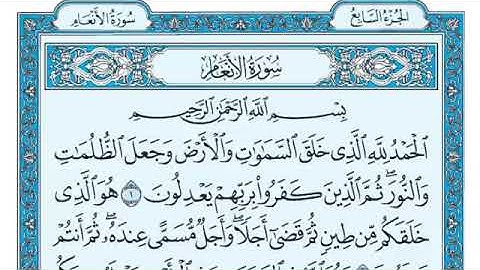 الجزء السابع
سورة الأنعام
سورة الأنعام
بسم الله الرحمن الرحيم
الحمد لله الذي خلق السموت والأرض وجعل الظلمت
والنور ثم الذين كفروا بربهم يعدلون ١ هو الذي
خلقكم من طين ثم قضى أجلا وأجل مسمى عنده ثم أنتم